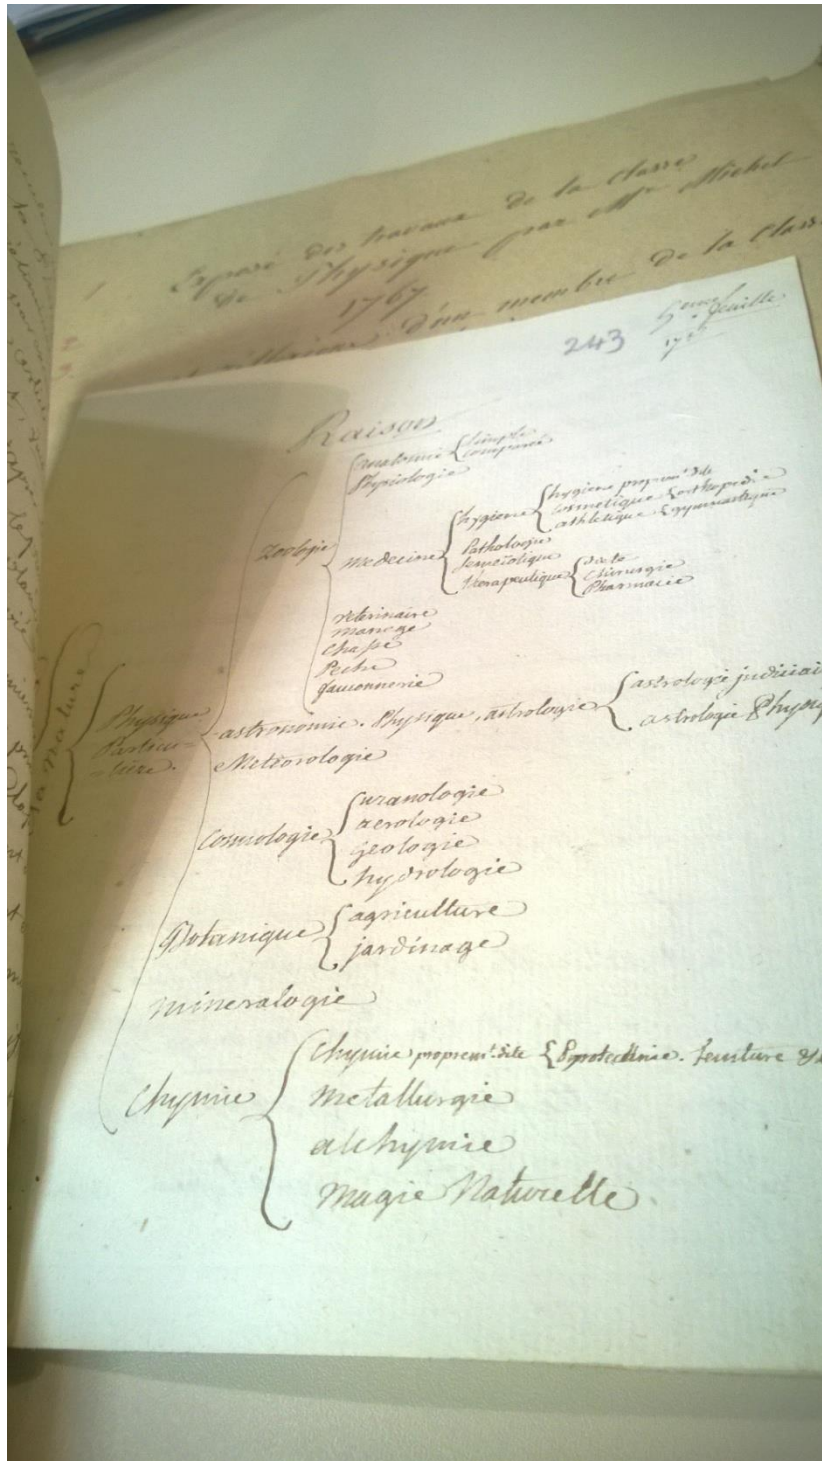 Exposé des travaux de la Classe
de Physique par Mr Michel
1767
d'un membre de la Classe
243
feuille
Raison
anatomie { simple
comparée
Physiologie
Zoologie
hygiene { hygiene proprem.t dite
cosmetique & orthopedie
athletique & gymnastique
medecine
Pathologie
Semeiotique
therapeutique { diete
Chirurgie
Pharmacie
veterinaire
manege
chasse
Peche
fauconnerie
la nature
Physique
Particu-
-liere.
astronomie. Physique, astrologie { astrologie judiciai
astrologie Physiq
Meteorologie
Cosmologie { uranologie
aerologie
geologie
hydrologie
Botanique { agriculture
jardinage
mineralogie
Chymie { Chymie proprem.t dite { Pyrotechnie. teinture &
metallurgie
alchymie
magie Naturelle